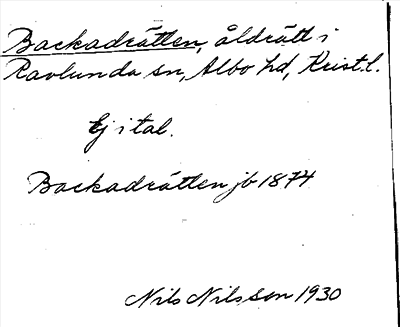 Backadrätten, åldrätt i
Ravlunda sn, Albo hd, Krist. l.
Ej i tal.
Backadrätten jb 1874
Nils Nilsson 1930